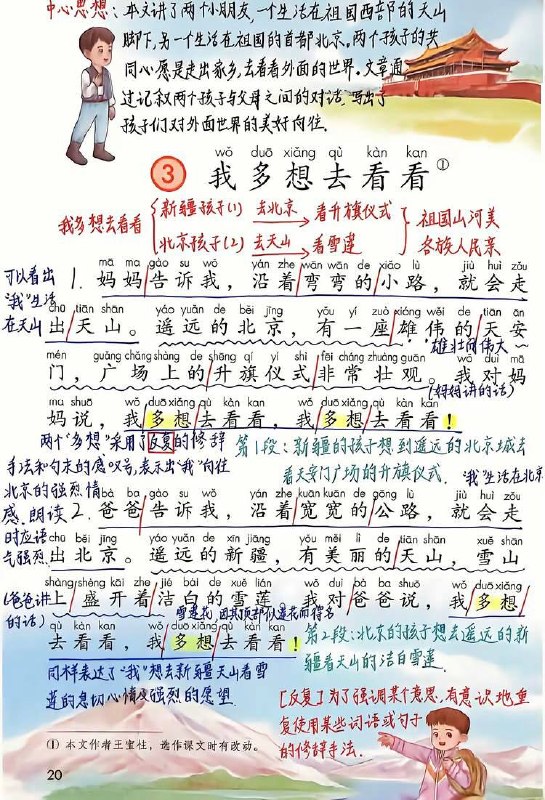 中心思想：本文讲了两个小朋友，一个生活在祖国西部的天山
脚下，另一个生活在祖国的首都北京。两个孩子的共
同心愿是走出家乡，去看看外面的世界。文章通
过记叙两个孩子与父母之间的对话，写出了
孩子们对外面世界的美好向往。
wǒ duō xiǎng qù kàn kan
3 我多想去看看①
我多想去看看
新疆孩子(1) 去北京 看升旗仪式
北京孩子(2) 去天山 看雪莲
祖国山河美
各族人民亲
可以看出
"我"生活
在天山
mā ma gào su wǒ yán zhe wān wān de xiǎo lù jiù huì zǒu
1. 妈妈告诉我，沿着弯弯的小路，就会走
chū tiān shān yáo yuǎn de běi jīng yǒu yí zuò xióng wěi de tiān ān
出天山。遥远的北京，有一座雄伟的天安
雄壮而伟大
mén guǎng chǎng shàng de shēng qí yí shì fēi cháng zhuàng guān wǒ duì mā
门，广场上的升旗仪式非常壮观。我对妈
(妈妈讲的话)
ma shuō wǒ duō xiǎng qù kàn kan wǒ duō xiǎng qù kàn kan
妈说，我多想去看看，我多想去看看！
两个"多想"采用了反复的修辞
手法和句末的感叹号，表示出"我"向往
北京的强烈情
感。朗读
时应语
气强烈.
第1段：新疆的孩子想到遥远的北京城去
看天安门广场的升旗仪式.
"我"生活在北京
bà ba gào su wǒ yán zhe kuān kuān de gōng lù jiù huì zǒu
2. 爸爸告诉我，沿着宽宽的公路，就会走
chū běi jīng yáo yuǎn de xīn jiāng yǒu měi lì de tiān shān xuě shān
出北京。遥远的新疆，有美丽的天山，雪山
shàng shèng kāi zhe jié bái de xuě lián wǒ duì bà ba shuō wǒ duō xiǎng
上盛开着洁白的雪莲。我对爸爸说，我多想
(爸爸讲
的话)
雪莲花，因其顶部似莲花而得名
qù kàn kan wǒ duō xiǎng qù kàn kan
去看看，我多想去看看！
第2段：北京的孩子想去遥远的新
疆看天山的洁白雪莲.
同样表达了"我"想去新疆天山看雪
莲的急切心情及强烈的愿望.
[反复]为了强调某个意思，有意识地重
复使用某些词语或句子
的修辞手法.
① 本文作者王宝柱，选作课文时有改动。
20